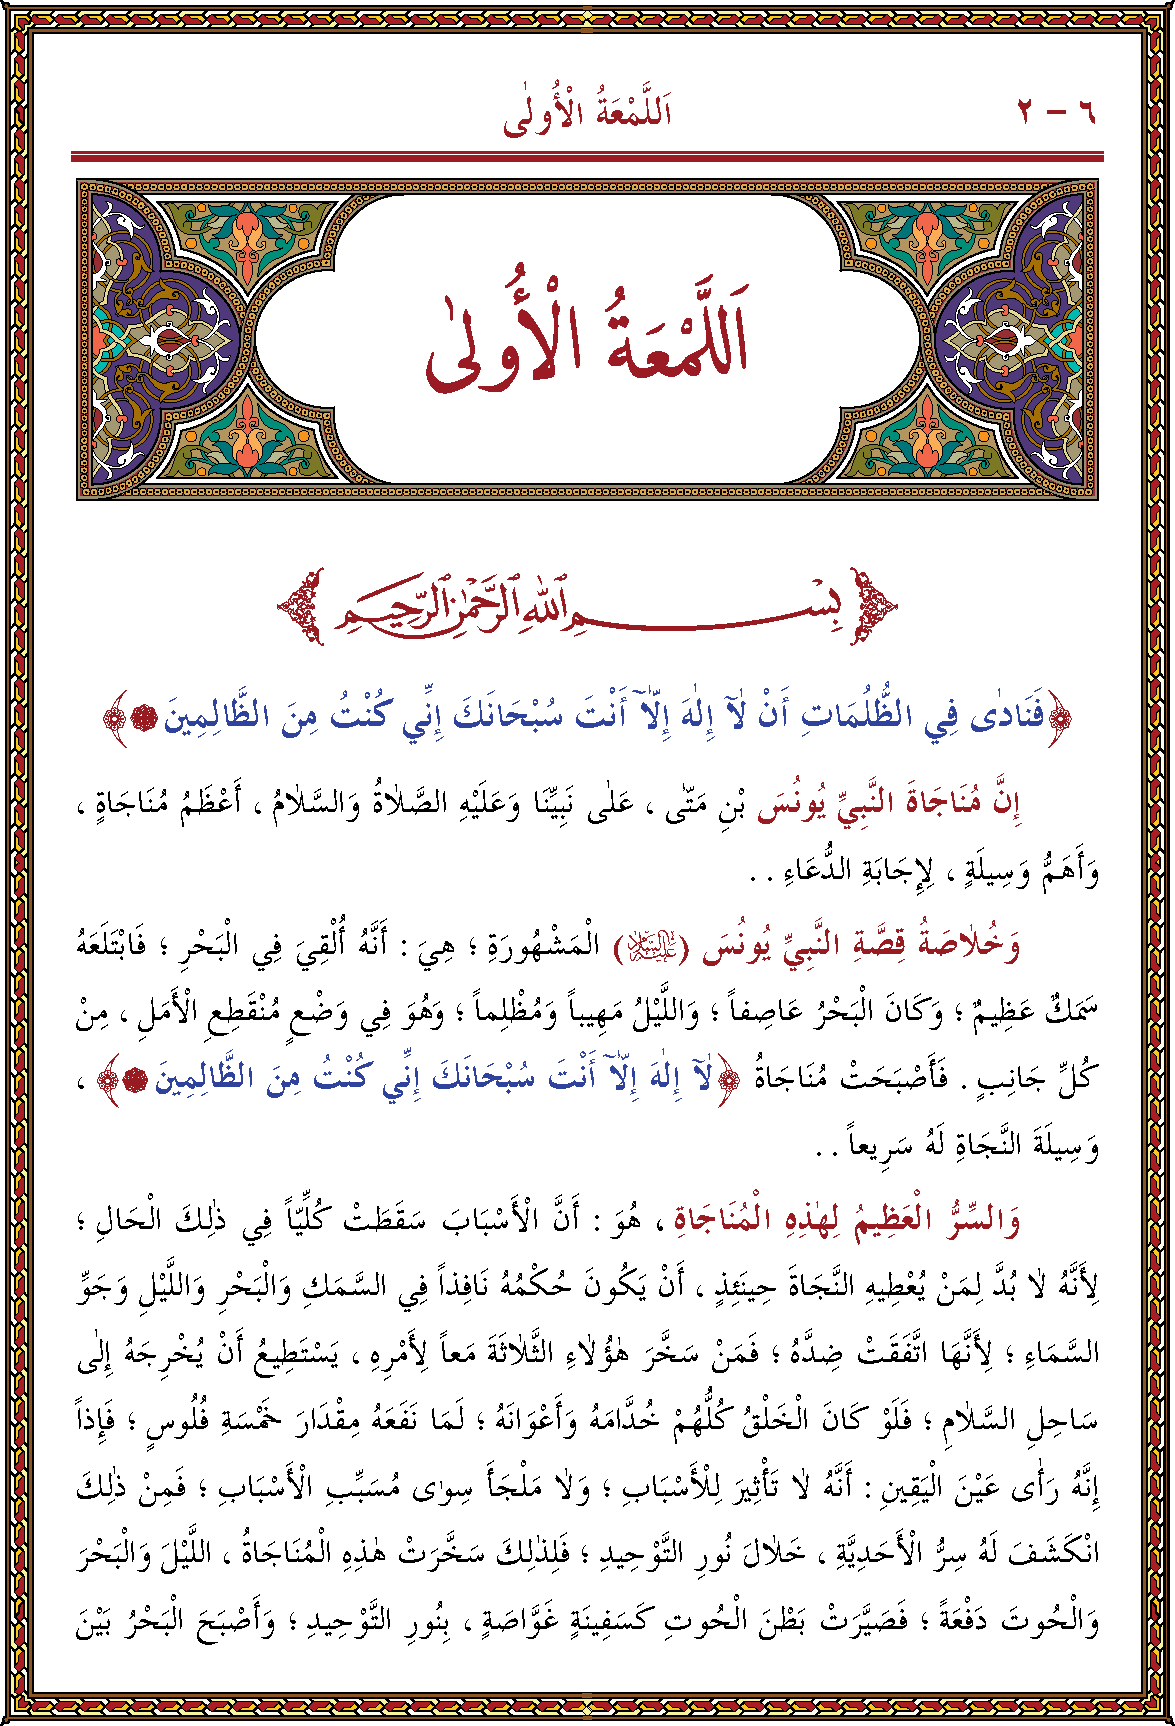 ٦ – ٢
اَللَّمْعَةُ الْأُولٰى
اَللَّمْعَةُ الْأُولٰى
بِسْمِ اللهِ الرَّحْمٰنِ الرَّحِيمِ
﴿فَنَادٰى فِي الظُّلُمَاتِ أَنْ لٰآ إِلٰهَ إِلَّآ أَنْتَ سُبْحَانَكَ إِنِّي كُنْتُ مِنَ الظَّالِمِينَ﴾
إِنَّ مُنَاجَاةَ النَّبِيِّ يُونُسَ بْنِ مَتّٰى ، عَلٰى نَبِيِّنَا وَعَلَيْهِ الصَّلَاةُ وَالسَّلَامُ ، أَعْظَمُ مُنَاجَاةٍ ،
وَأَهَمُّ وَسِيلَةٍ ، لِإِجَابَةِ الدُّعَاءِ . .
وَخُلَاصَةُ قِصَّةِ النَّبِيِّ يُونُسَ (عَلَيْهِ السَّلَام) الْمَشْهُورَةِ ؛ هِيَ : أَنَّهُ أُلْقِيَ فِي الْبَحْرِ ؛ فَابْتَلَعَهُ
سَمَكٌ عَظِيمٌ ؛ وَكَانَ الْبَحْرُ عَاصِفاً ؛ وَاللَّيْلُ مَهِيباً وَمُظْلِماً ؛ وَهُوَ فِي وَضْعٍ مُنْقَطِعِ الْأَمَلِ ، مِنْ
كُلِّ جَانِبٍ . فَأَصْبَحَتْ مُنَاجَاةُ ﴿لٰآ إِلٰهَ إِلَّآ أَنْتَ سُبْحَانَكَ إِنِّي كُنْتُ مِنَ الظَّالِمِينَ﴾ ،
وَسِيلَةَ النَّجَاةِ لَهُ سَرِيعاً . .
وَالسِّرُّ الْعَظِيمُ لِهٰذِهِ الْمُنَاجَاةِ ، هُوَ : أَنَّ الْأَسْبَابَ سَقَطَتْ كُلِّيّاً فِي ذٰلِكَ الْحَالِ ؛
لِأَنَّهُ لَا بُدَّ لِمَنْ يُعْطِيهِ النَّجَاةَ حِينَئِذٍ ، أَنْ يَكُونَ حُكْمُهُ نَافِذاً فِي السَّمَكِ وَالْبَحْرِ وَاللَّيْلِ وَجَوِّ
السَّمَاءِ ؛ لِأَنَّهَا اتَّفَقَتْ ضِدَّهُ ؛ فَمَنْ سَخَّرَ هٰؤُلَاءِ الثَّلَاثَةَ مَعاً لِأَمْرِهِ ، يَسْتَطِيعُ أَنْ يُخْرِجَهُ إِلٰى
سَاحِلِ السَّلَامِ ؛ فَلَوْ كَانَ الْخَلْقُ كُلُّهُمْ خُدَّامَهُ وَأَعْوَانَهُ ؛ لَمَا نَفَعَهُ مِقْدَارَ خَمْسَةِ فُلُوسٍ ؛ فَإِذاً
إِنَّهُ رَأٰى عَيْنَ الْيَقِينِ : أَنَّهُ لَا تَأْثِيرَ لِلْأَسْبَابِ ؛ وَلَا مَلْجَأَ سِوٰى مُسَبِّبِ الْأَسْبَابِ ؛ فَمِنْ ذٰلِكَ
انْكَشَفَ لَهُ سِرُّ الْأَحَدِيَّةِ ، خَلَالَ نُورِ التَّوْحِيدِ ؛ فَلِذٰلِكَ سَخَّرَتْ هٰذِهِ الْمُنَاجَاةُ ، اللَّيْلَ وَالْبَحْرَ
وَالْحُوتَ دَفْعَةً ؛ فَصَيَّرَتْ بَطْنَ الْحُوتِ كَسَفِينَةٍ غَوَّاصَةٍ ، بِنُورِ التَّوْحِيدِ ؛ وَأَصْبَحَ الْبَحْرُ بَيْنَ